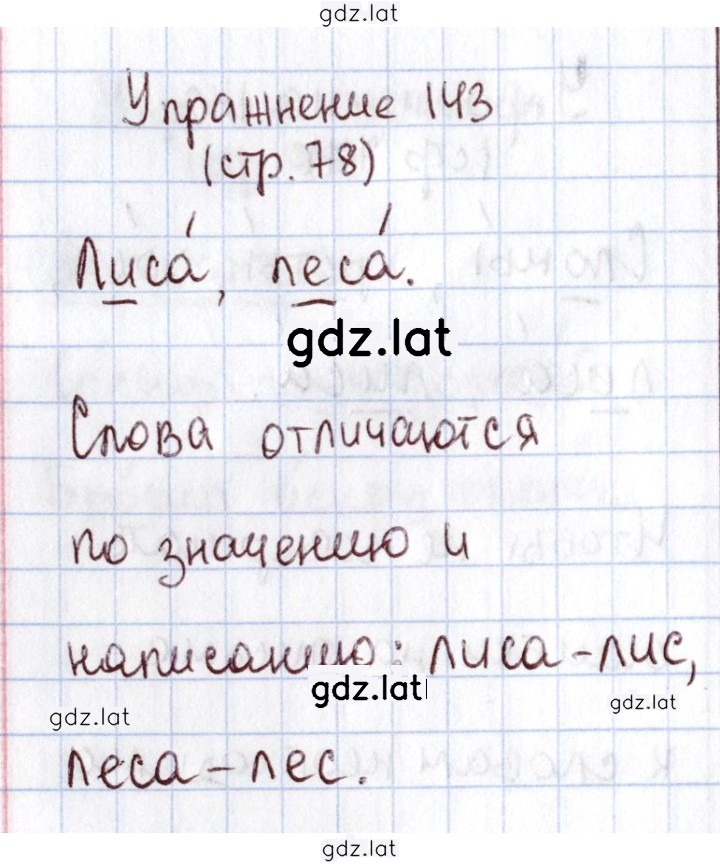 gdz.lat
Упражнение 143
(стр. 78)
Лиса́, леса́.
gdz.lat
Слова отличаются
по значению и
написанию: лиса - лис,
gdz.lat
gdz.lat
gdz.lat
леса - лес.
gdz.lat